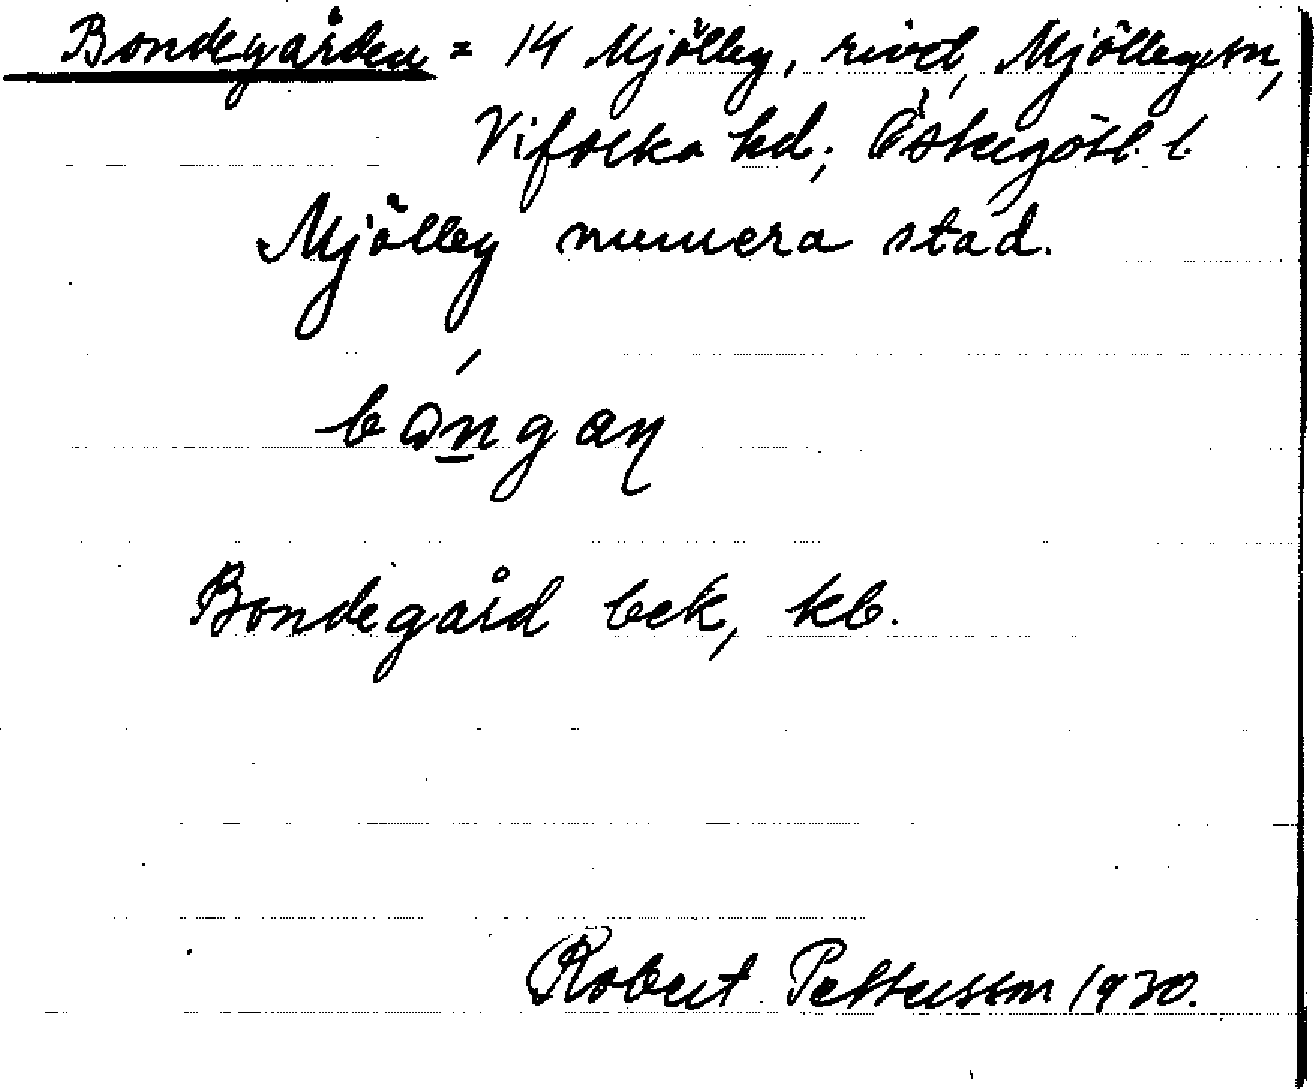 Bondegården = 14 Mjölby, rivet, Mjölby sn,
Vifolka hd; Östergötl. l.
Mjölby numera stad.
Bondegård bek, kb.
Robert Pettersson 1930.